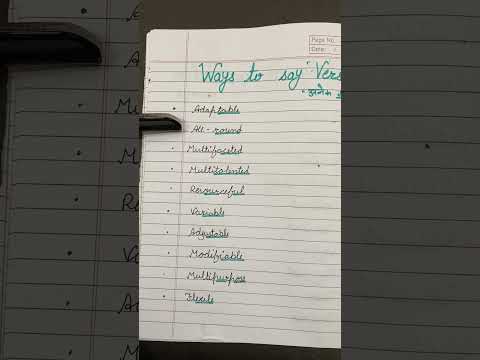 Page No.
Date:
Ways to say "Vers
"अनेक
• Adaptable
• All-round
• Multifaceted
• Multitalented
• Resourceful
• Variable
• Adjustable
• Modifiable
• Multipurpose
• Flexile